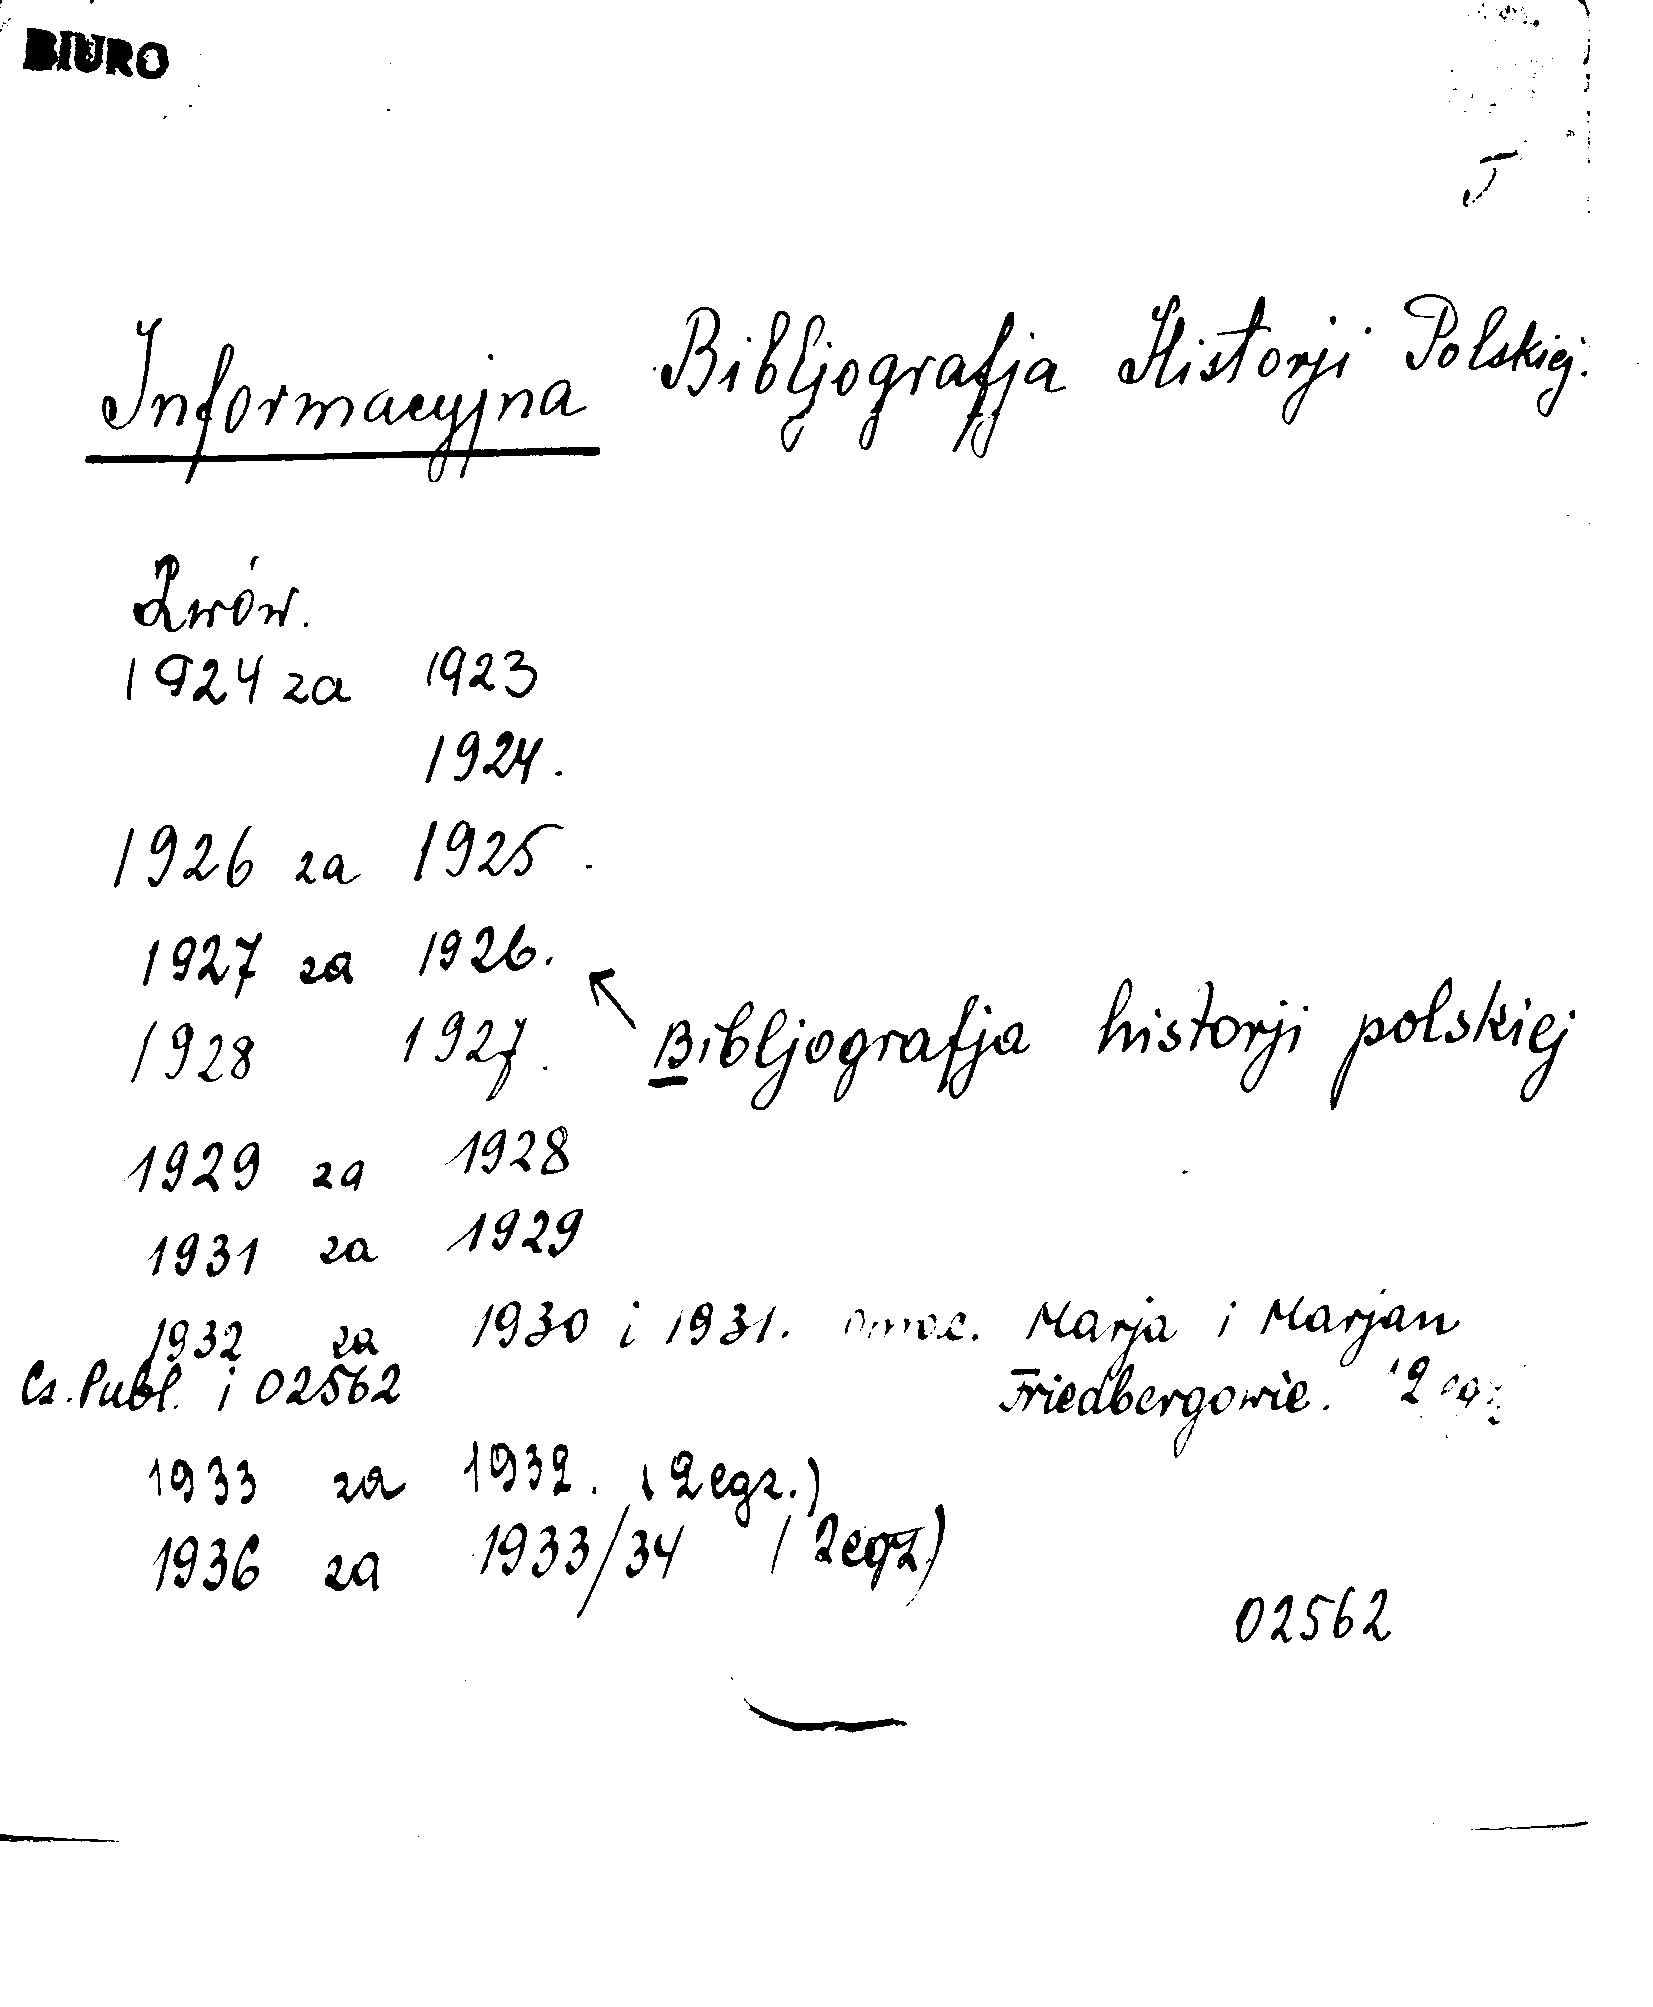 BIURO
J
Informacyjna Bibljografja Historji Polskiej.
Lwów.
1924 za 1923
1924.
1926 za 1925.
1927 za 1926.
1928 1927.
Bibljografja historji polskiej
1929 za 1928
1931 za 1929
1932 za 1930 i 1931. Marja i Marjan
Cz. Publ. i 02562 Friedbergowie. 2 egz
1933 za 1932. (2 egz.)
1936 za 1933/34 (2 egz.)
02562